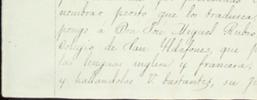 nombrar perito que los traduzca,
pongo á Don José Miguel Rubio
Colegio de San Ildefonso, que p
las lenguas inglesa y francesa,
y hallandolas V. bastantes, su